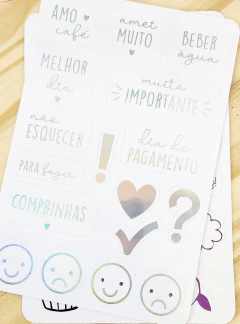 AMO
café
amei
MUITO
BEBER
água
MELHOR
dia
muito
IMPORTANTE
não
ESQUECER
!
dia de
PAGAMENTO
PARA fazer
COMPRINHAS
?